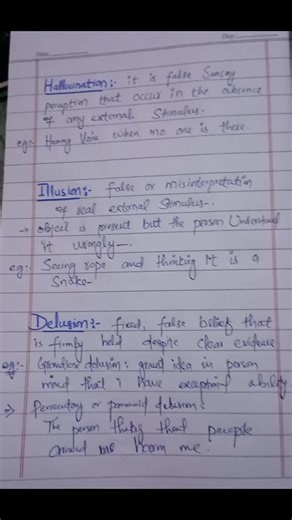 Date
Hallucination:- it is false Sensory
perception that occur in the absence
of any external Stimulus.
eg:- Hearing Voice when no one is there.
Illusion:- false or misinterpretation
of real external Stimulus-.
→ object is present but the person Understand
it wrongly-.
eg:- Seeing rope and thinking it is a
Snake-
Delusion:- fixed, false belief that
is firmly held despite clear evidence
eg:- Grandios delusion: grand idea in person
mind that i Have exceptional ability
⇒ Persecutory or paranoid delusion:
The person thinks that people
around me Harm me.